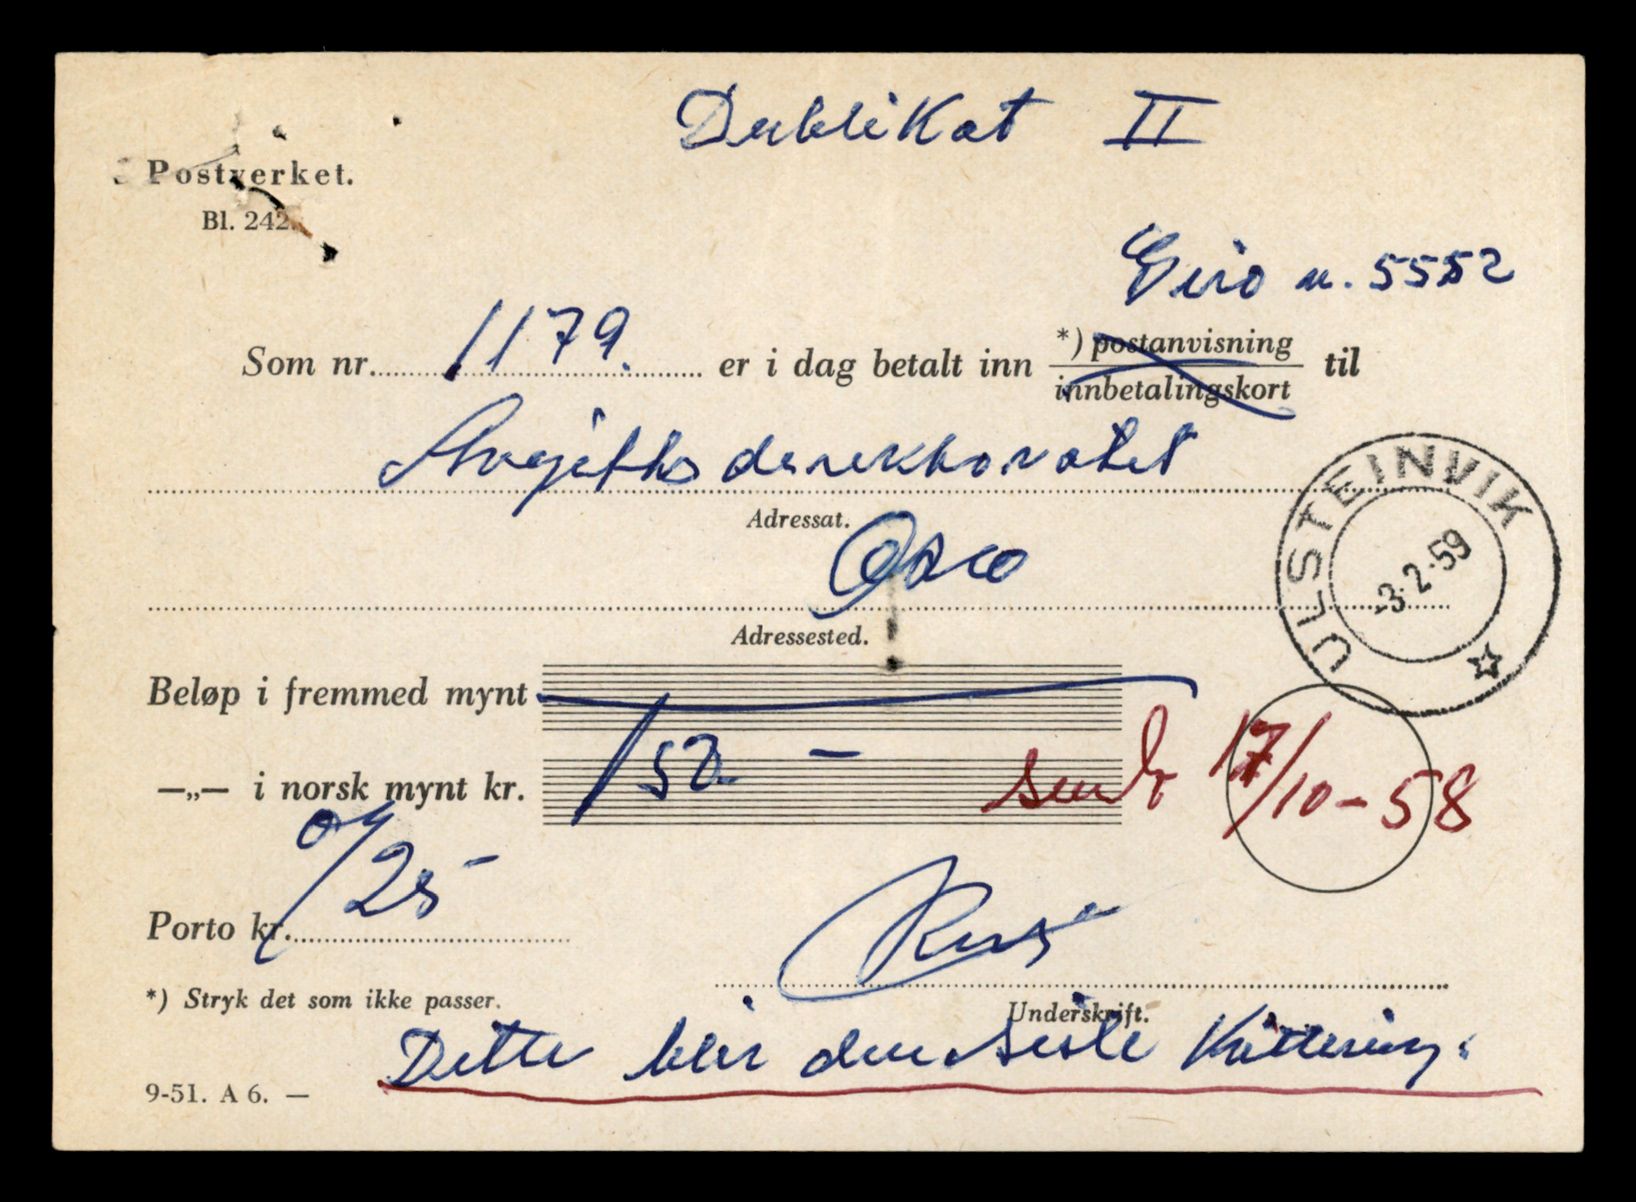 Dublikat II
Postverket.
Bl. 242.
Giro n. 5552
Som nr. 1179. er i dag betalt inn *) postanvisning til
innbetalingskort
Avgiftsdirektoratet
Adressat.
Oslo
Adressested.
ULSTEINVIK
-3.2.59
Beløp i fremmed mynt
—„— i norsk mynt kr. 150 —
sendt 17/10-58
og
/25 -
Porto kr.
*) Stryk det som ikke passer.
Underskrift.
Dette blir den siste Kvittering.
9-51. A 6. —